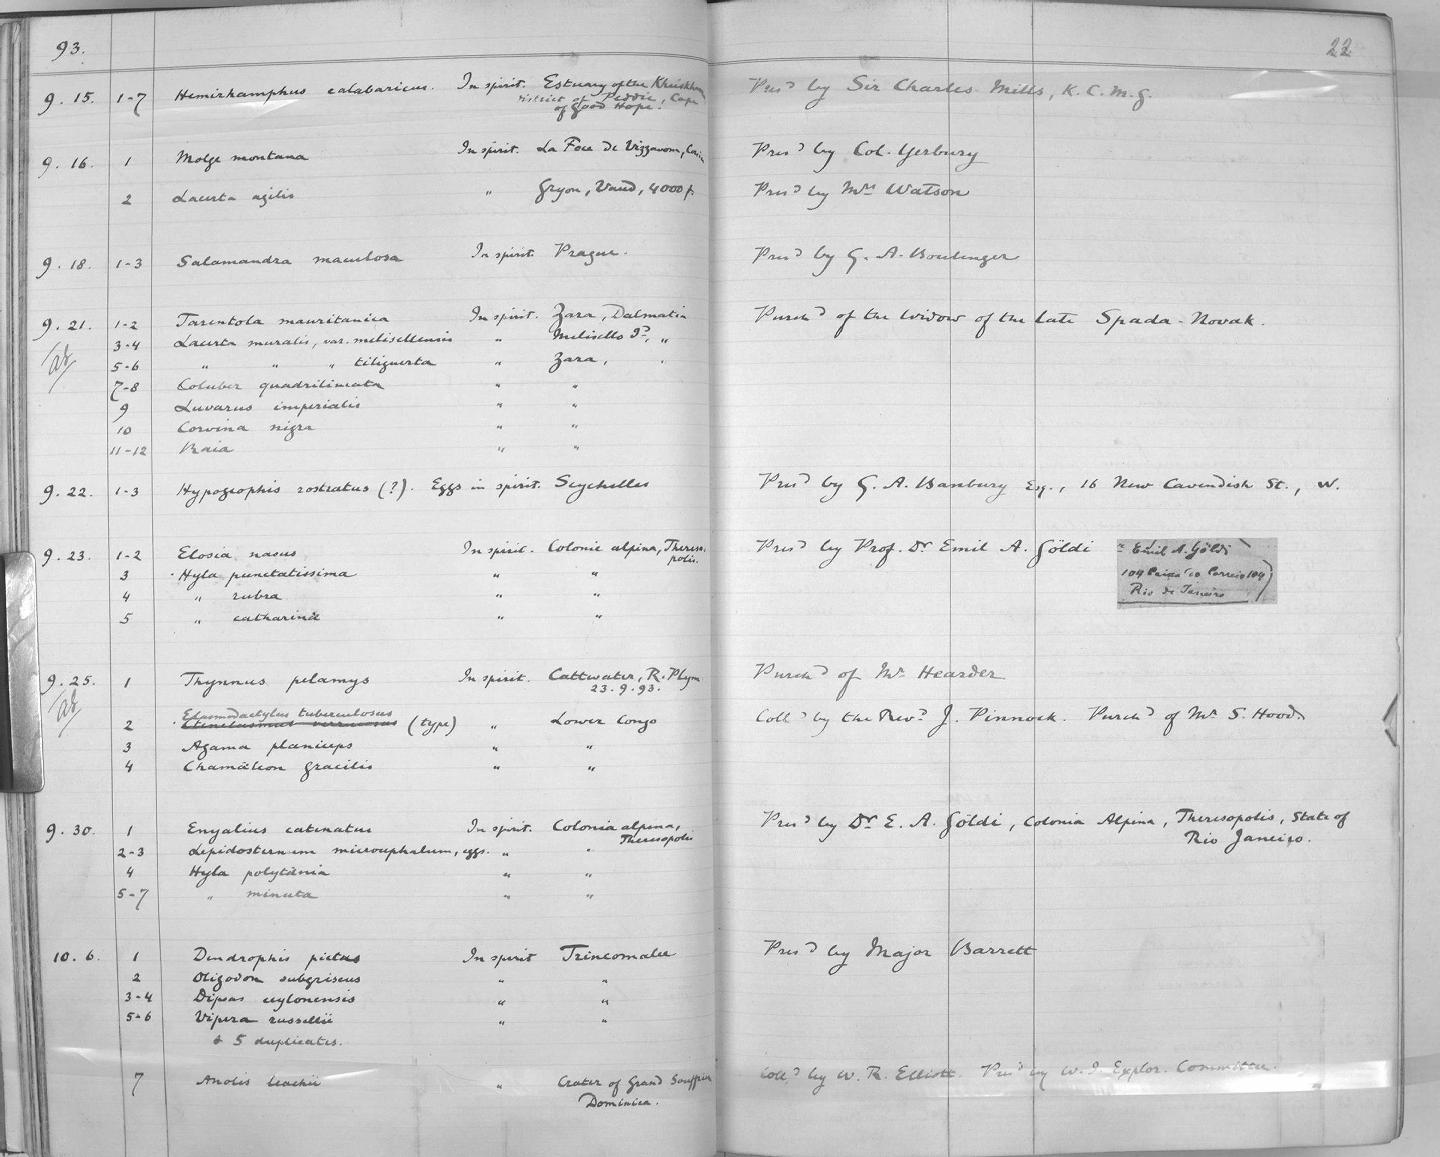 93.
22
9. 15. 1-7 Hemirhamphus calabaricus. In spirit. Estuary of the
District of Peddie, Cape
of Good Hope.
Pres.d by Sir Charles Mills, K.C.M.G.
9. 16. 1 Molge montana In spirit. La Foce de Vizzavona, Pres.d by Col. Yerbury
2 Lacerta agilis " Gryon, Vaud, 4000 f. Pres.d by Mrs Watson
9. 18. 1-3 Salamandra maculosa In spirit. Prague. Pres.d by G. A. Boulenger
9. 21. 1-2 Tarentola mauritanica In spirit. Zara, Dalmatia Purch.d of the widow of the late Spada-Novak.
3-4 Lacerta muralis, var. melisellensis " Melisello Id., "
5-6 " " " tiliguerta " Zara, "
7-8 Coluber quadrilineata " "
9 Luvarus imperialis " "
10 Corvina nigra " "
11-12 Raia " "
9. 22. 1-3 Hypogeophis rostratus (?). Eggs in spirit. Seychelles Pres.d by G. A. Banbury Esq., 16 New Cavendish St., W.
9. 23. 1-2 Elosia nasus In spirit. Colonie alpina, Thereso-
polis. Pres.d by Prof. Dr. Emil A. Göldi
Emil A. Göldi
104 Caixa do Correio 104
Rio de Janeiro
3 Hyla punctatissima " "
4 " rubra " "
5 " catharinæ " "
9. 25. 1 Thynnus pelamys In spirit. Cattwater, R. Plym
23.9.93. Purch.d of Mr. Hearder
Elasmodactylus tuberculosus
2 (type) " Lower Congo Coll.d by the Rev.d J. Pinnock. Purch.d of Mr. S. Hood
3 Agama planiceps " "
4 Chamæleon gracilis " "
9. 30. 1 Enyalius catenatus In spirit. Colonia alpina,
Theresopolis
Pres.d by Dr. E. A. Göldi, Colonia Alpina, Theresopolis, State of
Rio Janeiro.
2-3 Lepidosternum microcephalum, eggs. " "
4 Hyla polytænia " "
5-7 " minuta " "
10. 6. 1 Dendrophis pictus In spirit Trincomalee Pres.d by Major Barrett
2 Oligodon subgriseus " "
3-4 Dipsas ceylonensis " "
5-6 Vipera russellii " "
& 5 duplicates.
7 Anolis leachii " Crater of Grand Souffrière
Dominica.
Coll.d by W. R. Elliott. Pres.d by W. I. Explor. Committee.